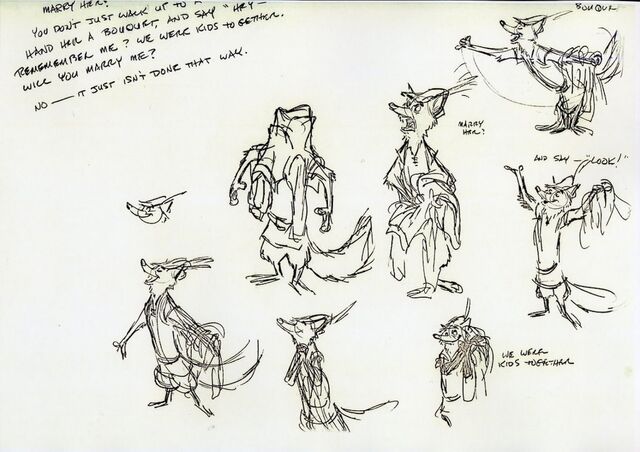 MARRY HER?
YOU DON'T JUST WALK UP TO A
HAND HER A BOUQUET, AND SAY "HEY—
REMEMBER ME? WE WERE KIDS TOGETHER.
WILL YOU MARRY ME?
NO — IT JUST ISN'T DONE THAT WAY.
BOUQUE
MARRY
HER?
AND SAY — "LOOK!"
WE WERE
KIDS TOGETHER